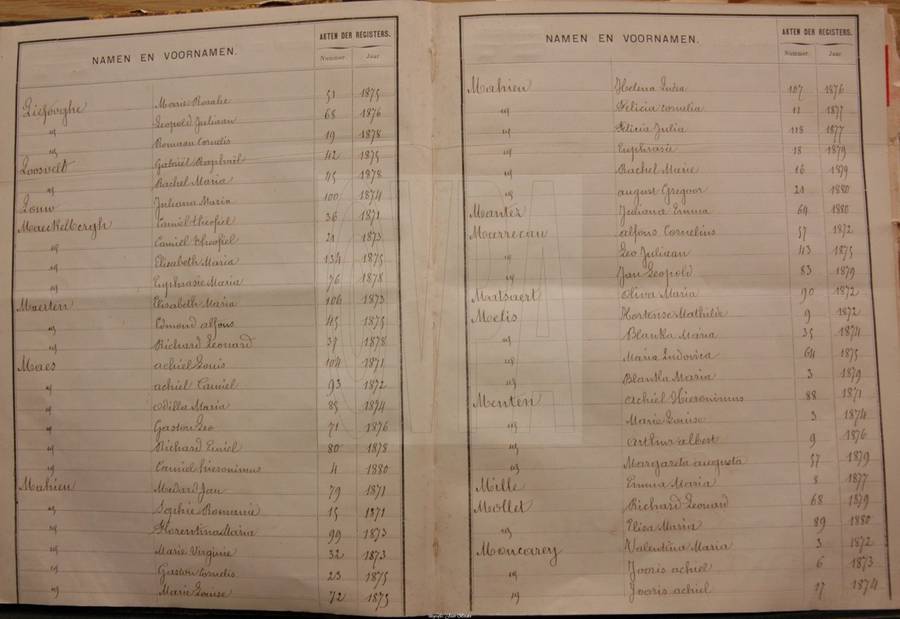 NAMEN EN VOORNAMEN. AKTEN DER REGISTERS.
Nummer Jaar
Liefooghe Marie Rosalie 51 1875
id Leopold Juliaan 68 1876
id Romaan Cornelis 19 1878
Loosvelt Gabriël Raphaël 42 1875
id Rachel Maria 45 1878
Louw Juliana Maria 100 1874
Maeckelbergh Camiel theofiel 36 1871
id Camiel theofiel 21 1873
id Elisabeth Maria 134 1875
id Euphrasie Maria 76 1878
Maerten Elisabeth Maria 106 1873
id Edmond alfons 45 1875
id Richard Leonard 37 1878
Maes achiel Louis 104 1871
id achiel Camiel 93 1872
id Odilla Maria 85 1874
id Gaston Leo 71 1876
id Richard Emiel 80 1878
id Camiel hieronimus 4 1880
Mahieu Medard Jan 79 1871
id Sophie Romanie 15 1871
id Florentina Maria 99 1873
id Marie Virginie 32 1873
id Gaston Cornelis 23 1875
id Marie Louise 72 1875
NAMEN EN VOORNAMEN. AKTEN DER REGISTERS.
Nummer Jaar
Mahieu Helena Ludia 107 1876
id Felicia Cornelia 11 1877
id Felicia Julia 118 1877
id Euphrasie 18 1879
id Rachel Marie 16 1879
id august Gregoor 21 1880
Manter Juliana Emma 64 1880
Marrecau alfons Cornelius 57 1872
id Leo Juliaan 43 1875
id Jan Leopold 83 1879
Matsaert Oliva Maria 90 1872
Melis Hortense Mathilde 9 1872
id Blanka Maria 35 1874
id Maria Ludovica 64 1875
id Blanka Maria 3 1879
Menten Achiel Hieronimus 88 1871
id Marie Louise 3 1874
id Arthur albert 9 1876
id Margareta augusta 57 1879
Mille Emma Maria 8 1877
Mollet Richard Leonard 68 1879
id Elisa Maria 89 1880
Moncarey Valentina Maria 3 1872
id Jooris achiel 6 1873
id Jooris achiel 17 1874